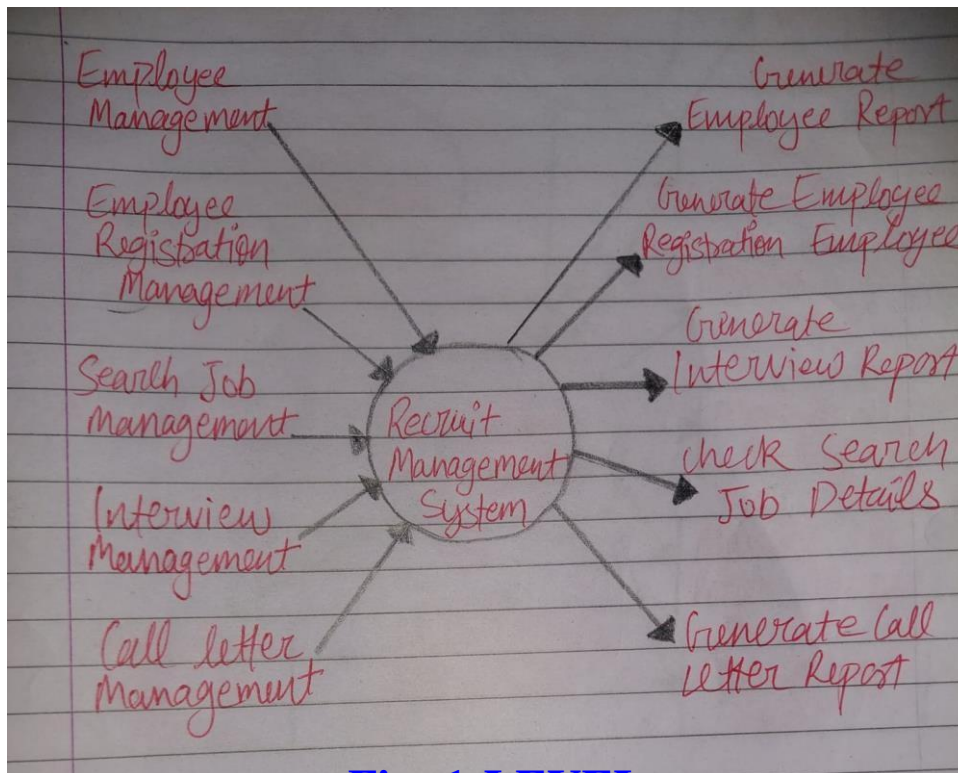 Employee
Management
Employee
Registration
Management
Search Job
Management
Interview
Management
Call letter
Management
Recruit
Management
System
Generate
Employee Report
Generate Employee
Registration Employee
Generate
Interview Report
check Search
Job Details
Generate Call
Letter Report